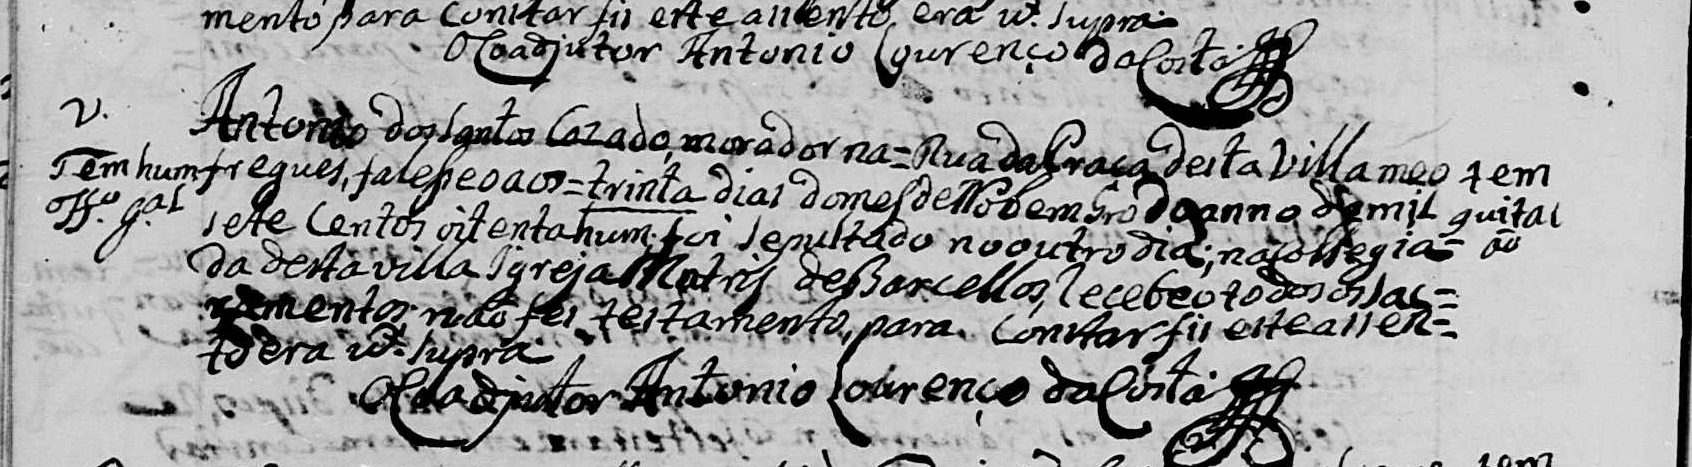 mento, para Constar fis este assento, era ut Supra.
O Coadjutor Antonio Lourenço da Costa
V.
Antonio dos Santos Cazado, morador na = Rua da Graça desta Villa meo
Tem hum
off.o g.al
freques, faleseo aos = trinta dias do mes de Nobembro do anno de mil
sete Centos oitenta hum, foi sepultado no outro dia, na Collegia=
da desta villa Igreja Matris de Barcellos, Recebeo todos os sac=
ramentos não fes testamento, para Constar fis este assen=
to era ut Supra.
O Coadjutor Antonio Lourenço da Costa
tem
quitas
ão
tem